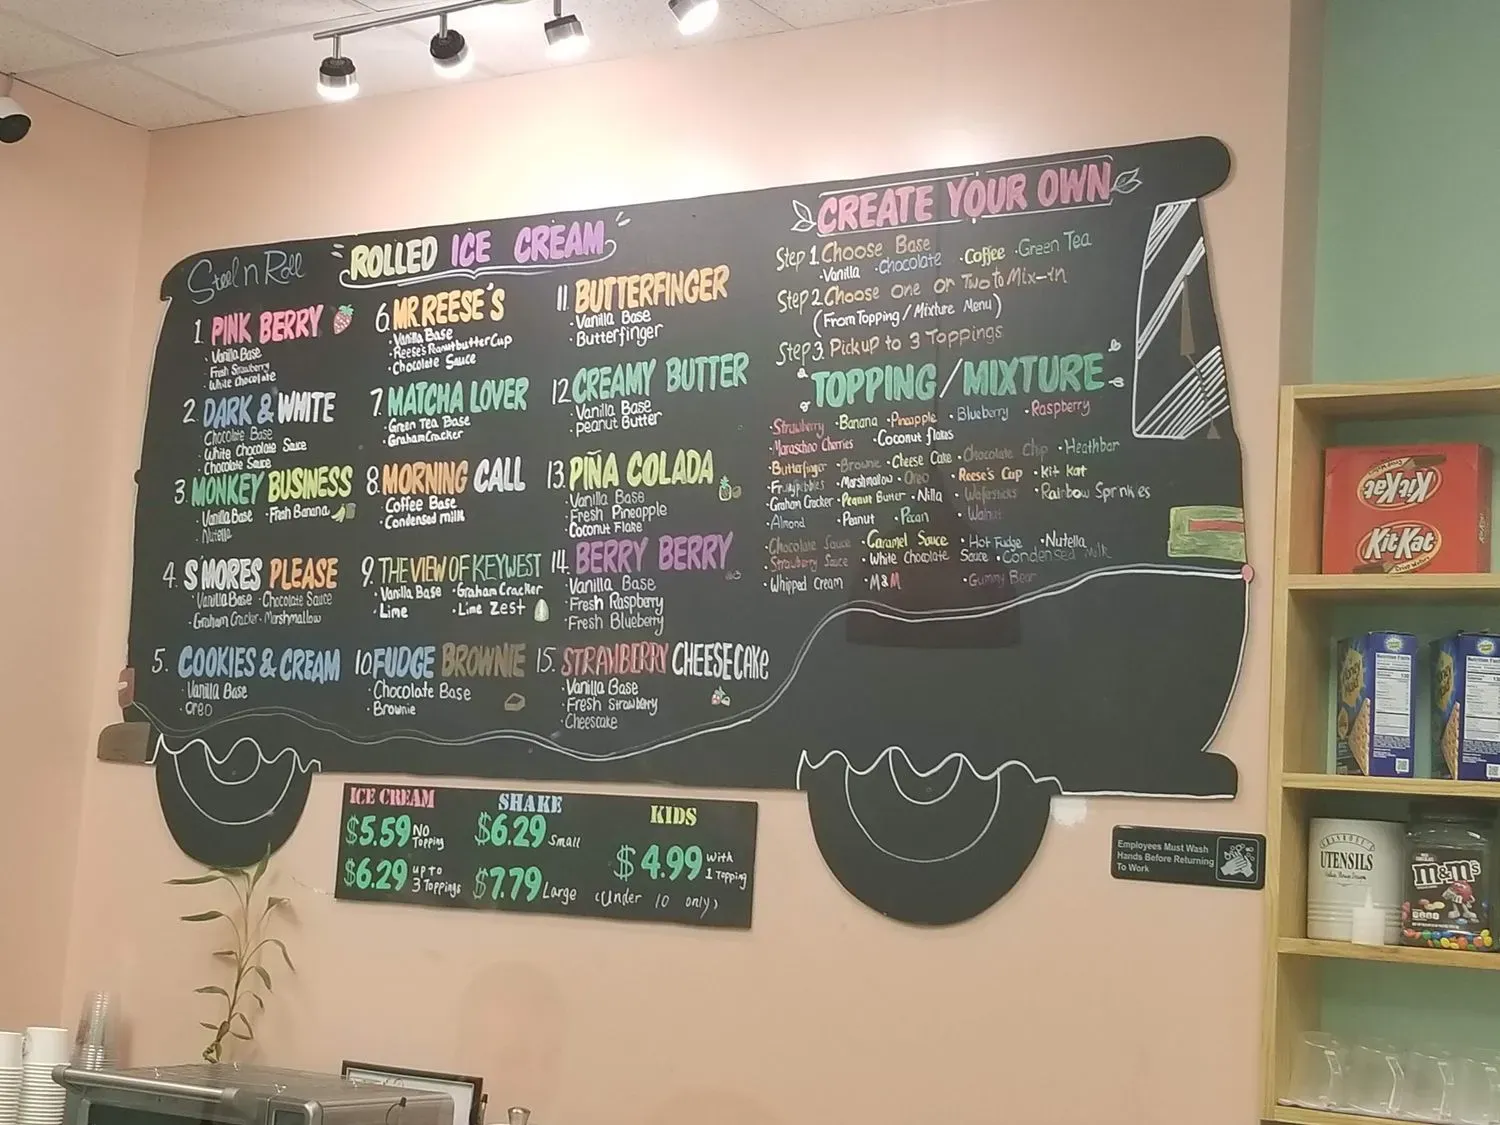 Steel n Roll
ROLLED ICE CREAM
1. PINK BERRY
· Vanilla Base
· Fresh Strawberry
· White Chocolate
2. DARK & WHITE
· Chocolate Base
· White Chocolate Sauce
· Chocolate Sauce
3. MONKEY BUSINESS
· Vanilla Base · Fresh Banana
· Nutella
4. S'MORES PLEASE
· Vanilla Base · Chocolate Sauce
· Graham Cracker · Marshmallow
5. COOKIES & CREAM
· Vanilla Base
· Oreo
6. MR REESE'S
· Vanilla Base
· Reese's Peanutbutter Cup
· Chocolate Sauce
7. MATCHA LOVER
· Green Tea Base
· Graham Cracker
8. MORNING CALL
· Coffee Base
· Condensed Milk
9. THE VIEW OF KEYWEST
· Vanilla Base · Graham Cracker
· Lime · Lime Zest
10. FUDGE BROWNIE
· Chocolate Base
· Brownie
11. BUTTERFINGER
· Vanilla Base
· Butterfinger
12. CREAMY BUTTER
· Vanilla Base
· Peanut Butter
13. PIÑA COLADA
· Vanilla Base
· Fresh Pineapple
· Coconut Flake
14. BERRY BERRY
· Vanilla Base
· Fresh Raspberry
· Fresh Blueberry
15. STRAWBERRY CHEESECAKE
· Vanilla Base
· Fresh Strawberry
· Cheescake
CREATE YOUR OWN
Step 1. Choose Base
· Vanilla · Chocolate · Coffee · Green Tea
Step 2. Choose One or Two to Mix-in
(From Topping / Mixture Menu)
Step 3. Pick up to 3 Toppings
TOPPING / MIXTURE
· Strawberry · Banana · Pineapple · Blueberry · Raspberry
· Maraschino Cherries · Coconut flakes · Chocolate Chip · Heathbar
· Butterfinger · Brownie · Cheese Cake · Reese's Cup · Kit Kat
· Fruitypebbles · Marshmallow · Oreo · Wafersticks · Rainbow Sprinkles
· Graham Cracker · Peanut Butter · Nilla · Walnut
· Almond · Peanut · Pecan
· Chocolate Sauce · Caramel Sauce · Hot Fudge · Nutella
· Strawberry Sauce · White Chocolate Sauce · Condensed Milk
· Whipped Cream · M&M · Gummy Bear
ICE CREAM
$5.59 No Topping
$6.29 up to 3 Toppings
SHAKE
$6.29 Small
$7.79 Large
KIDS
$4.99 With 1 Topping
(Under 10 only)
Employees Must Wash
Hands Before Returning
To Work
KitKat
KitKat
Nutrition Facts
Nutrition Facts
UTENSILS
m&m's